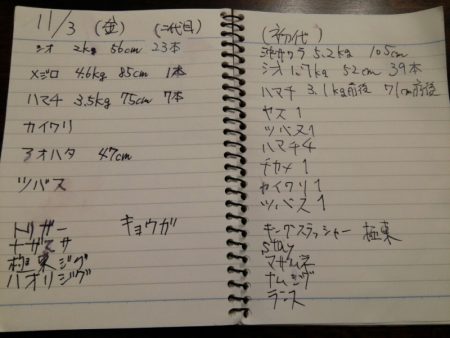 11/3 (金) (二代目)
シオ 2kg 56cm 23本
メジロ 4.6kg 85cm 1本
ハマチ 3.5kg 75cm 7本
カイワリ
アオハタ 47cm
ツバス
トリガー キョウガ
ナガスサ
極東ジグ
ハオリジグ
(初代)
沖サワラ 5.2kg 105cm
シオ 1.7kg 52cm 39本
ハマチ 3.1kg前後 71cm前後
ヤズ 1
ツバス1
ハマチ4
チカメ1
カイワリ1
ツバス1
キングスラッシャー 極東
stay
マサムネ
ナムジグ
ランス